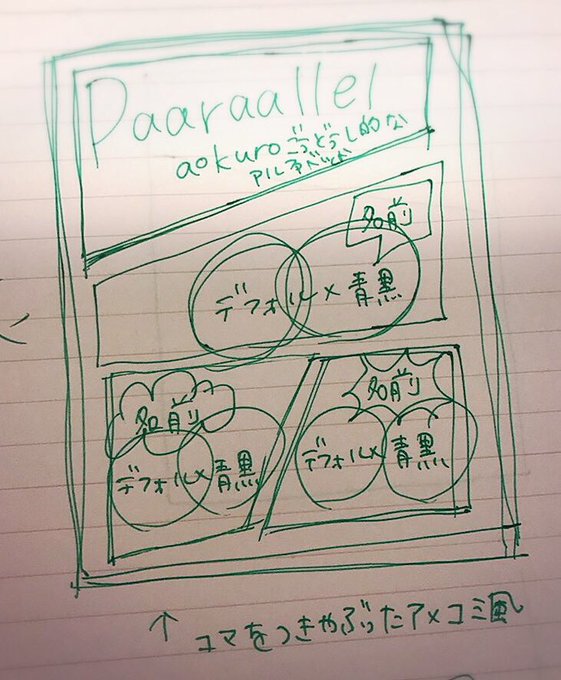 Paaraallel
aokuroごうどうし的な
アルファベット
名前
デフォルメ 青黒
名前
デフォルメ 青黒
名前
デフォルメ 青黒
↑ コマをつきやぶったアメコミ風